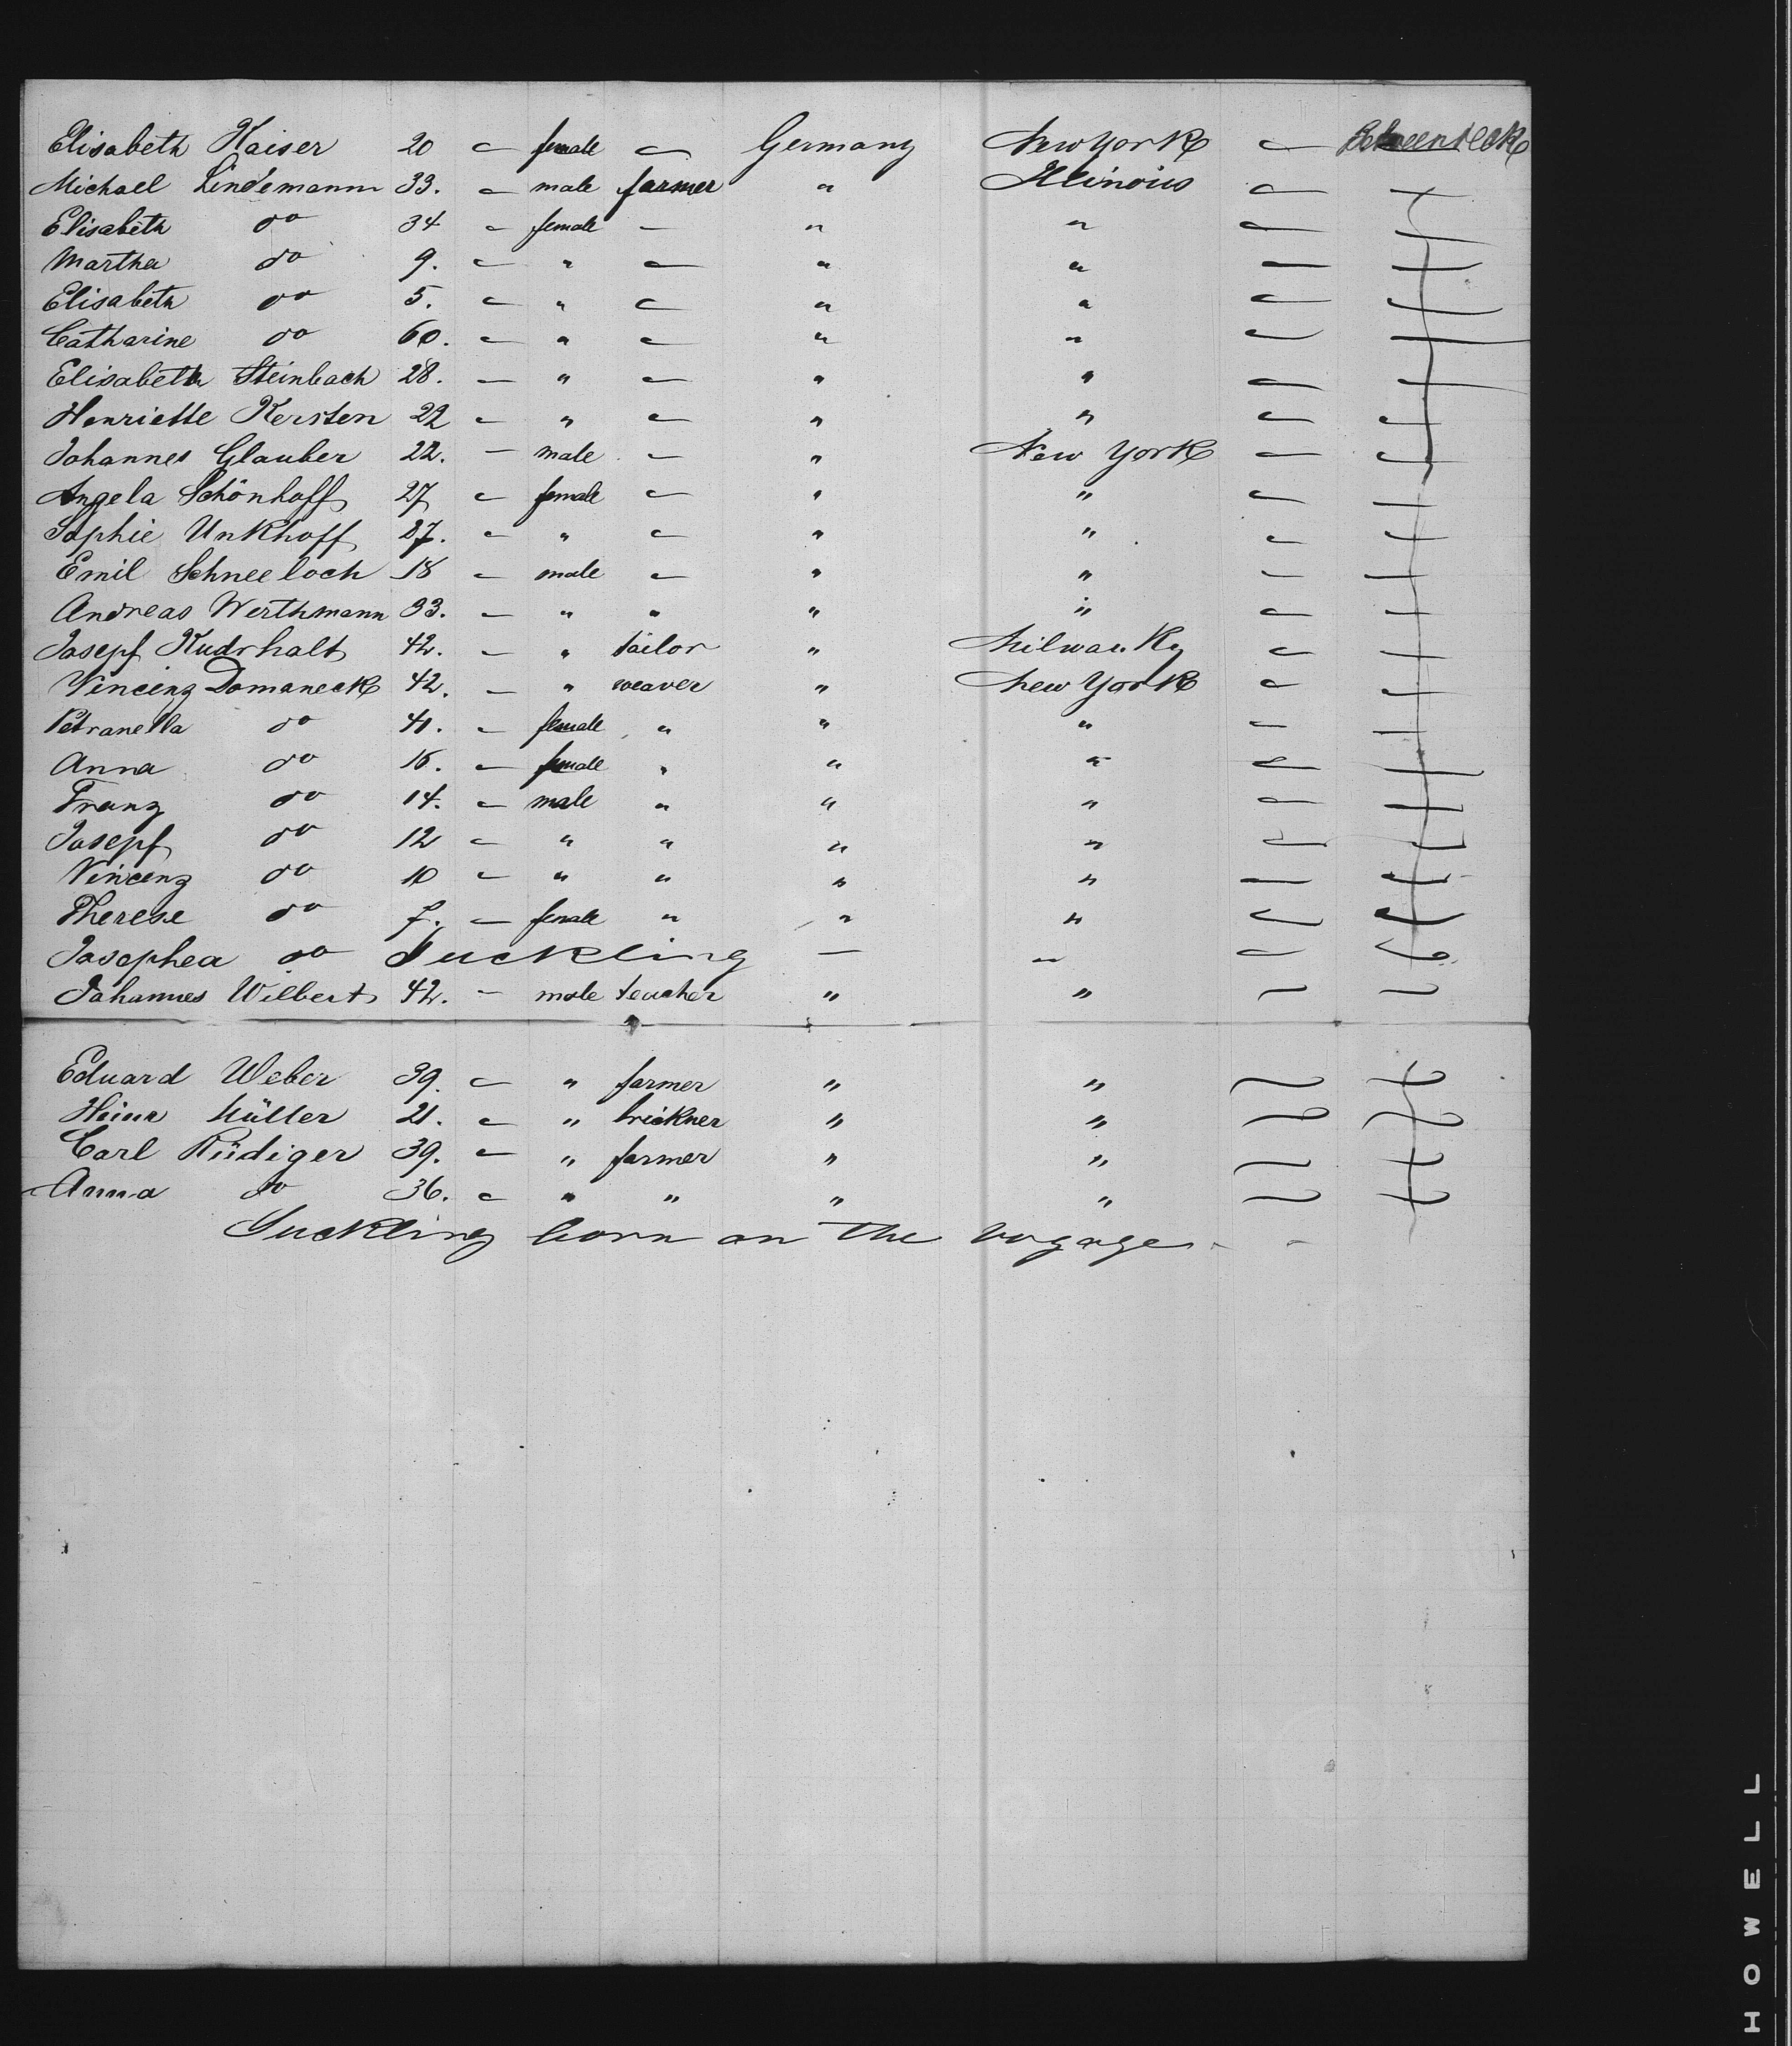 Elisabeth Kaiser 20 — female — Germany New York — Betweendeck
Michael Lindemann 33. — male farmer " Illinois — —
Elisabeth do 34 — female — " " — —
Martha do 9. — " — " " — —
Elisabeth do 5. — " — " " — —
Catharine do 60. — " — " " — —
Elisabeth Steinbach 28. — " — " " — —
Henriette Kersten 22 — " — " " — —
Johannes Glauber 22. — male — " New York — —
Angela Schönhoff 27 — female — " " — —
Sophie Unkhoff 27. — " — " " — —
Emil Schneeloch 18 — male — " " — —
Andreas Werthmann 33. — " " " " — —
Josepf Kudrhalt 42. — " tailor " Milwauky — —
Vincenz Domaneck 42. — " weaver " New York — —
Petranella do 41. — female " " " — —
Anna do 16. — female " " " — —
Franz do 14. — male " " " — —
Josepf do 12 — " " " " — —
Vincenz do 10 — " " " " — —
Therese do 7. — female " " " — —
Josephea do Suckling — " — —
Johannes Wilbert 42. — male teacher " " — —
Eduard Weber 39. — " farmer " " — —
Heinr Müller 21. — " brickner " " — —
Carl Rüdiger 39. — " farmer " " — —
Anna do 36. — " " " " — —
Suckling born on the voyage - -
HOWELL